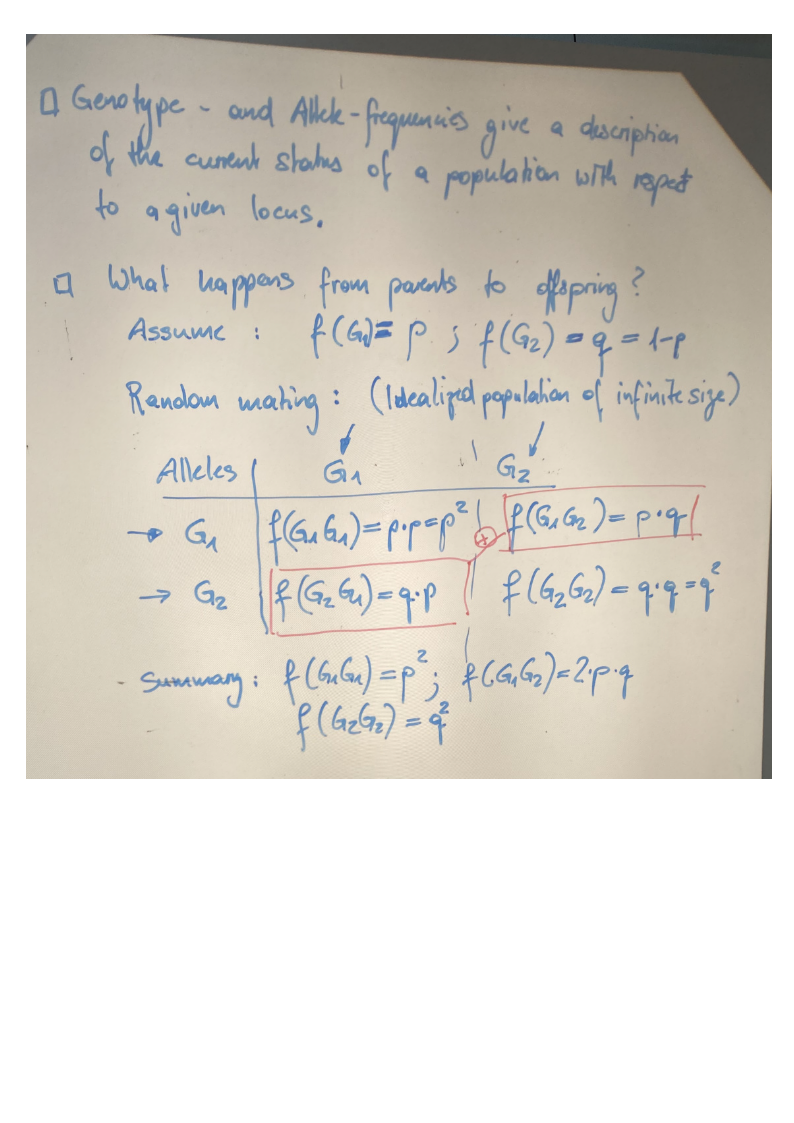 □ Genotype - and Allele-frequencies give a description
of the current status of a population with respect
to a given locus.
□ What happens from parents to offspring?
Assume : f(G1) = p ; f(G2) = q = 1-p
Random mating : (Idealized population of infinite size)
Alleles G1 G2
→ G1 f(G1G1) = p·p = p² + f(G1G2) = p·q
→ G2 f(G2G1) = q·p f(G2G2) = q·q = q²
- Summary : f(G1G1) = p² ; f(G1G2) = 2·p·q
f(G2G2) = q²